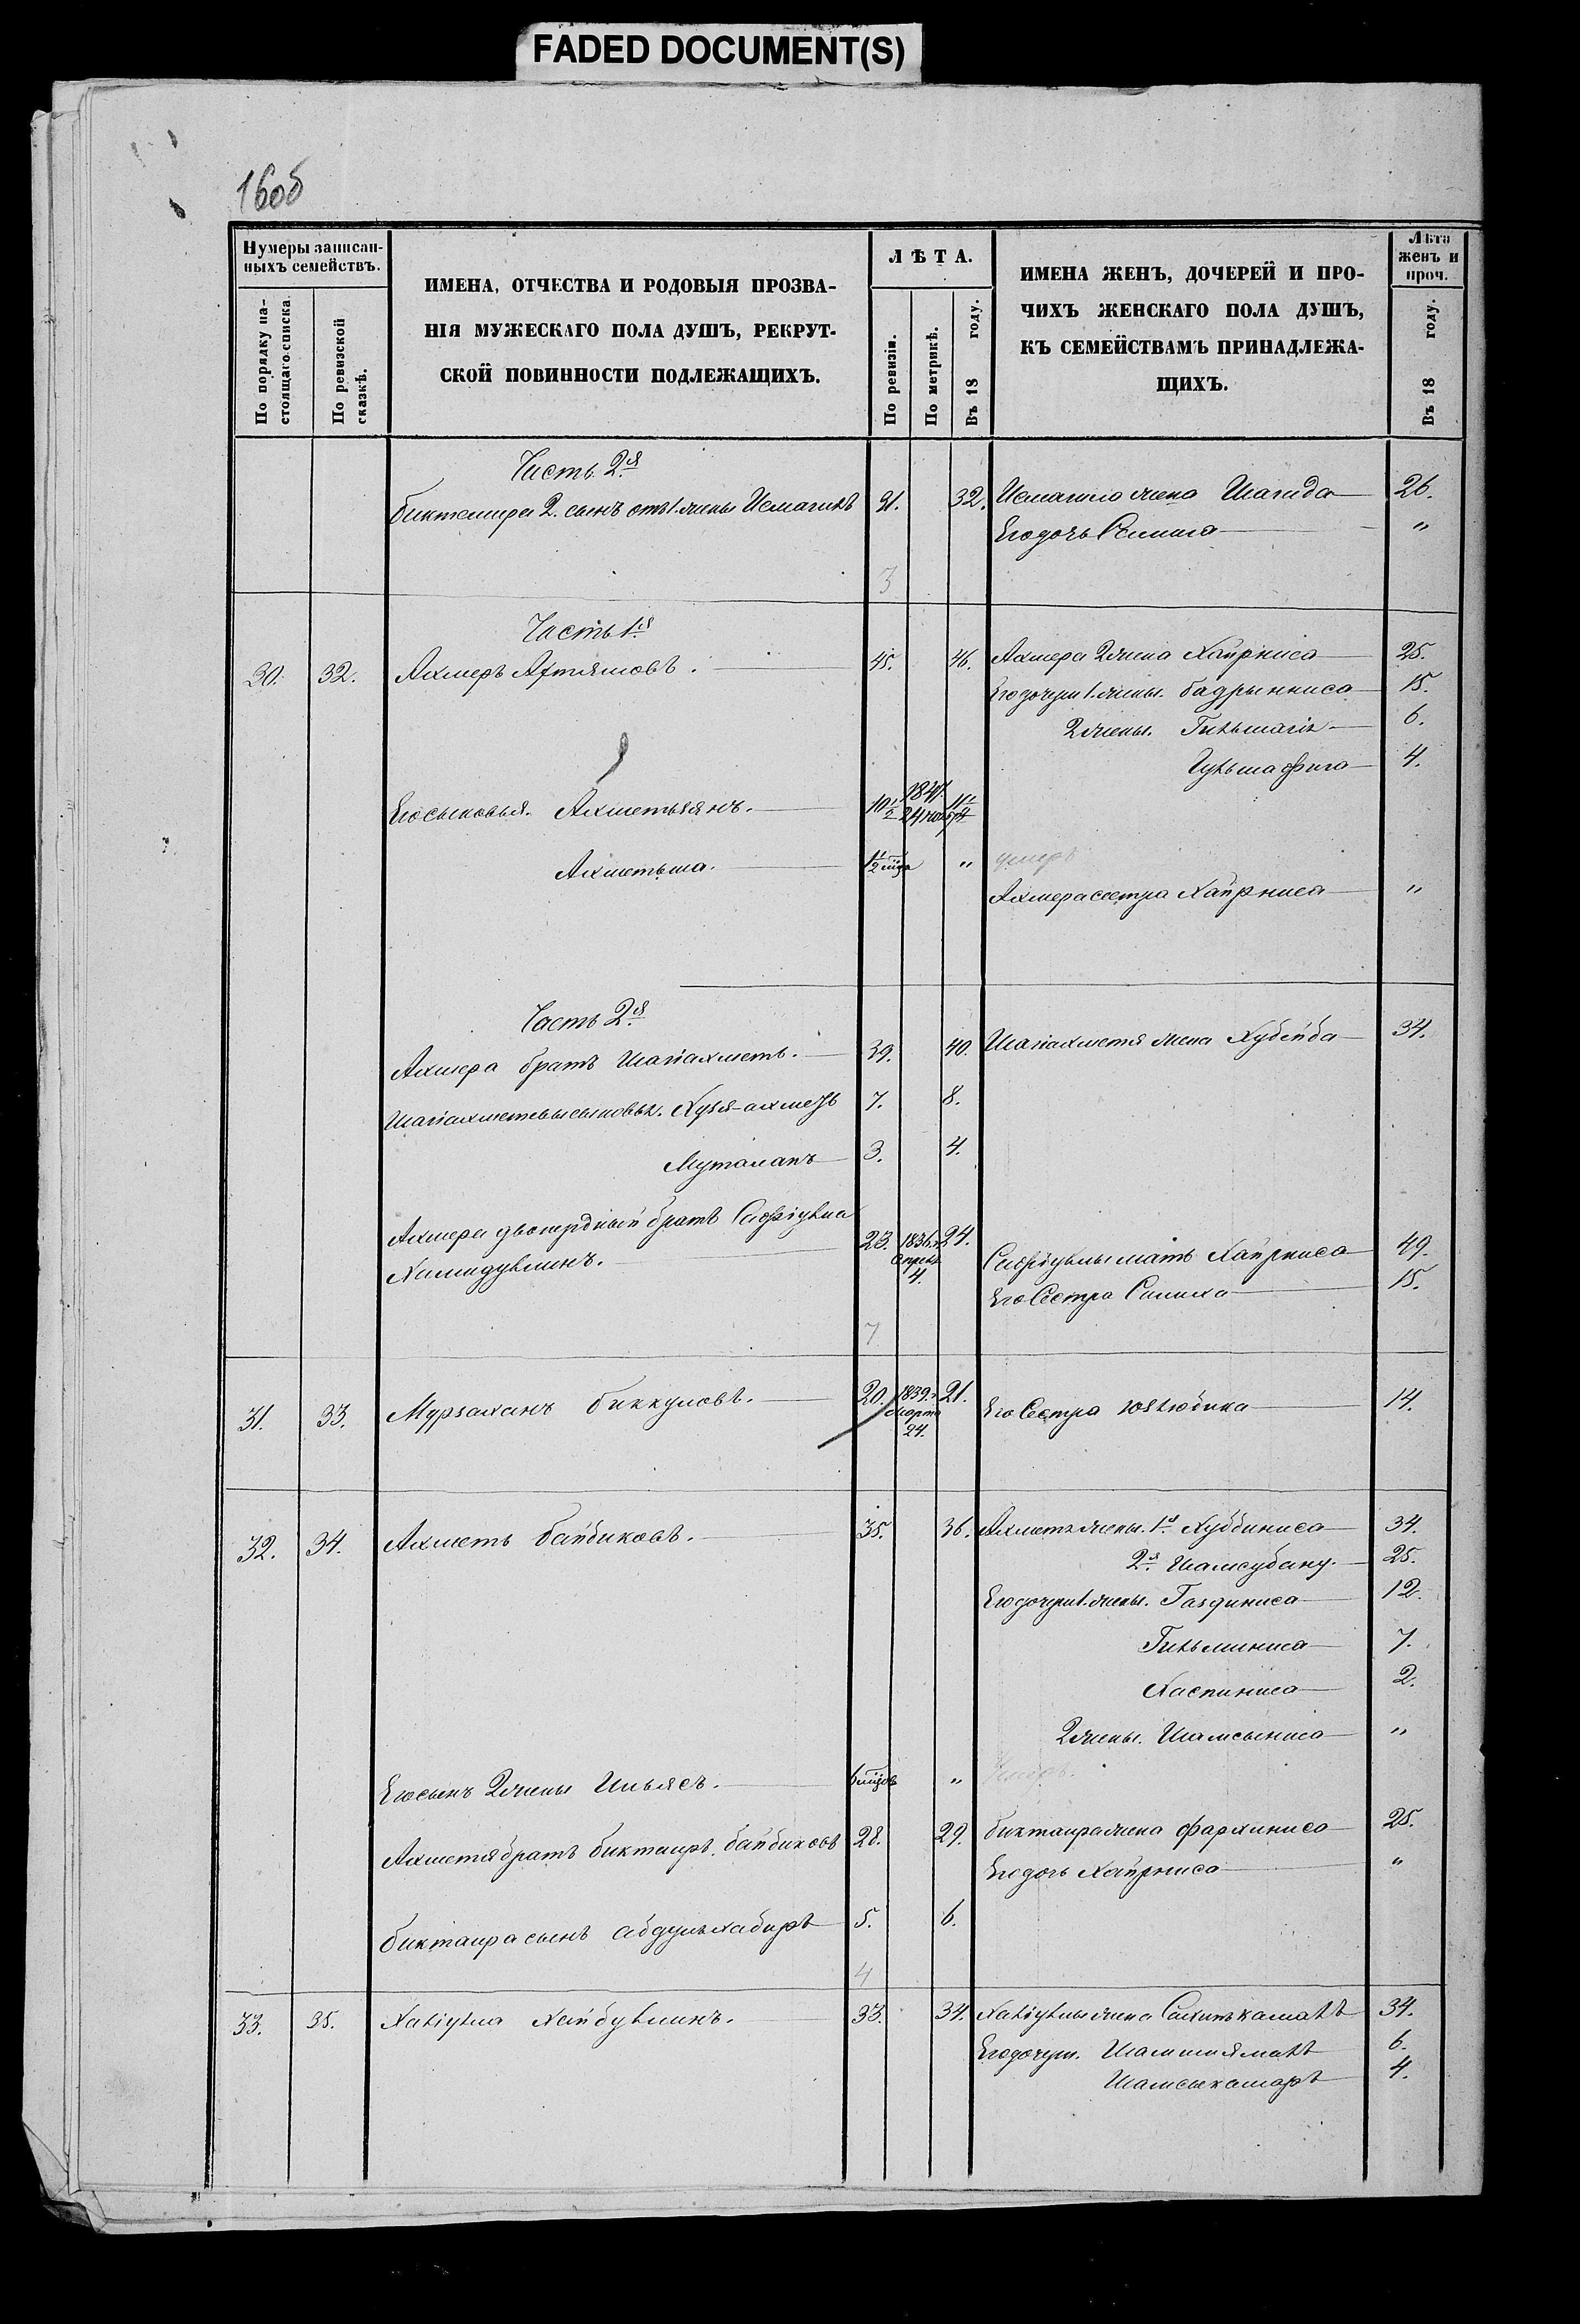 FADED DOCUMENT(S)
160б
Нумеры записан-
ныхъ семействъ.
По порядку на-
стоящаго списка.
По ревизской
сказкѣ.
ИМЕНА, ОТЧЕСТВА И РОДОВЫЯ ПРОЗВА-
НІЯ МУЖЕСКАГО ПОЛА ДУШЪ, РЕКРУТ-
СКОЙ ПОВИННОСТИ ПОДЛЕЖАЩИХЪ.
ЛѢТА.
По ревизіи.
По метрикѣ.
Въ 18 году.
ИМЕНА ЖЕНЪ, ДОЧЕРЕЙ И ПРО-
ЧИХЪ ЖЕНСКАГО ПОЛА ДУШЪ,
КЪ СЕМЕЙСТВАМЪ ПРИНАДЛЕЖА-
ЩИХЪ.
Лѣта
женъ и
проч.
Въ 18 году.
Часть 2я
Биктемира 2. сынъ отъ 1. жены Исмагилъ 31. 32. Исмагила жена Шагида 26.
Его дочь "
3
Часть 1я
30. 32. Ахмеръ 45. 46. Ахмера 2 жена Хайрниса 25.
Его дочери 1. жены. Бадрынниса 15.
2 жены. 6.
4.
Его сыновья. Ахметьзянъ. 10 1/2 1847. 24 11 1/2
Ахметьша. 1 1/2 " умеръ
Ахмера сестра Хайрниса "
Часть 2я
Ахмера братъ Шагіахметъ. 39. 40. Шагіахметя жена Хубейба 34.
Шагіахметевы сыновья. 7. 8.
Муталапъ 3. 4.
Ахмера двоюродный братъ Сафіулла
Хамидуллинъ. 23. 1836. Апрѣля 4. 24.
Сафіуллы мать Хайрниса 49.
Его Сестра Салиха 15.
7
31. 33. Мурзаханъ Биккуловъ. 20. 1839. Марта 24. 21. Его Сестра 14.
32. 34. Ахметъ Байбиковъ. 35. 36. Ахметя жены. 1я Хуббиниса 34.
2я Шамсубану. 25.
Его дочери 1. жены. Газдиниса 12.
Гильминиса 7.
Хаспиниса 2.
2 жены. Шамсыниса "
Его сынъ 2 жены Ильясъ. 6 " Умеръ.
Ахметя братъ Биктаиръ Байбиковъ 28. 29. Биктаира жена Фархиниса 25.
Его дочь Хайрниса "
Биктаира сынъ Абдулъхабиръ 5. 6.
4
33. 35. Хабіулла Хайбуллинъ. 33. 34. Хабіуллы жена 34.
Его дочери. 6.
Шамсыкамаръ 4.